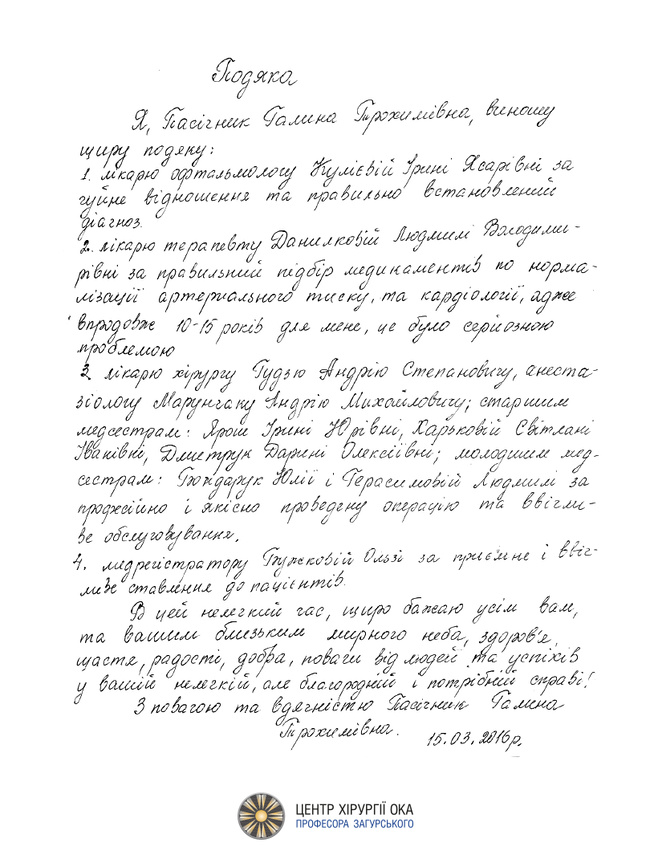 Подяка
Я, Пасічник Галина Трохимівна, виношу
щиру подяку:
1. лікарю офтальмологу Кулієвій Ірині Ясарівні за
чуйне відношення та правильно встановлений
діагноз.
2. лікарю терапевту Данилковій Людмилі Володими-
рівні за правильний підбір медикаментів по норма-
лізації артеріального тиску, та кардіології, адже
впродовж 10-15 років для мене, це було серйозною
проблемою
3. лікарю хірургу Гудзю Андрію Степановичу, анеста-
зіологу Марунчаку Андрію Михайловичу; старшим
медсестрам: Ярош Ірині Юрівні, Харьковій Світлані
Іванівні, Дмитрук Дарині Олексіївні; молодшим мед-
сестрам: Бондарук Юлії і Герасимовій Людмилі за
професійно і якісно проведену операцію та ввічли-
ве обслуговування.
4. медрегістратору Бужковій Ользі за приємне і ввіч-
ливе ставлення до пацієнтів.
В цей нелегкий час, щиро бажаю усім вам,
та вашим близьким мирного неба, здоров'я,
щастя, радості, добра, поваги від людей та успіхів
у вашій нелегкій, але благородній і потрібній справі!
З повагою та вдячністю Пасічник Галина
Трохимівна. 15.03.2016р.
ЦЕНТР ХІРУРГІЇ ОКА
ПРОФЕСОРА ЗАГУРСЬКОГО